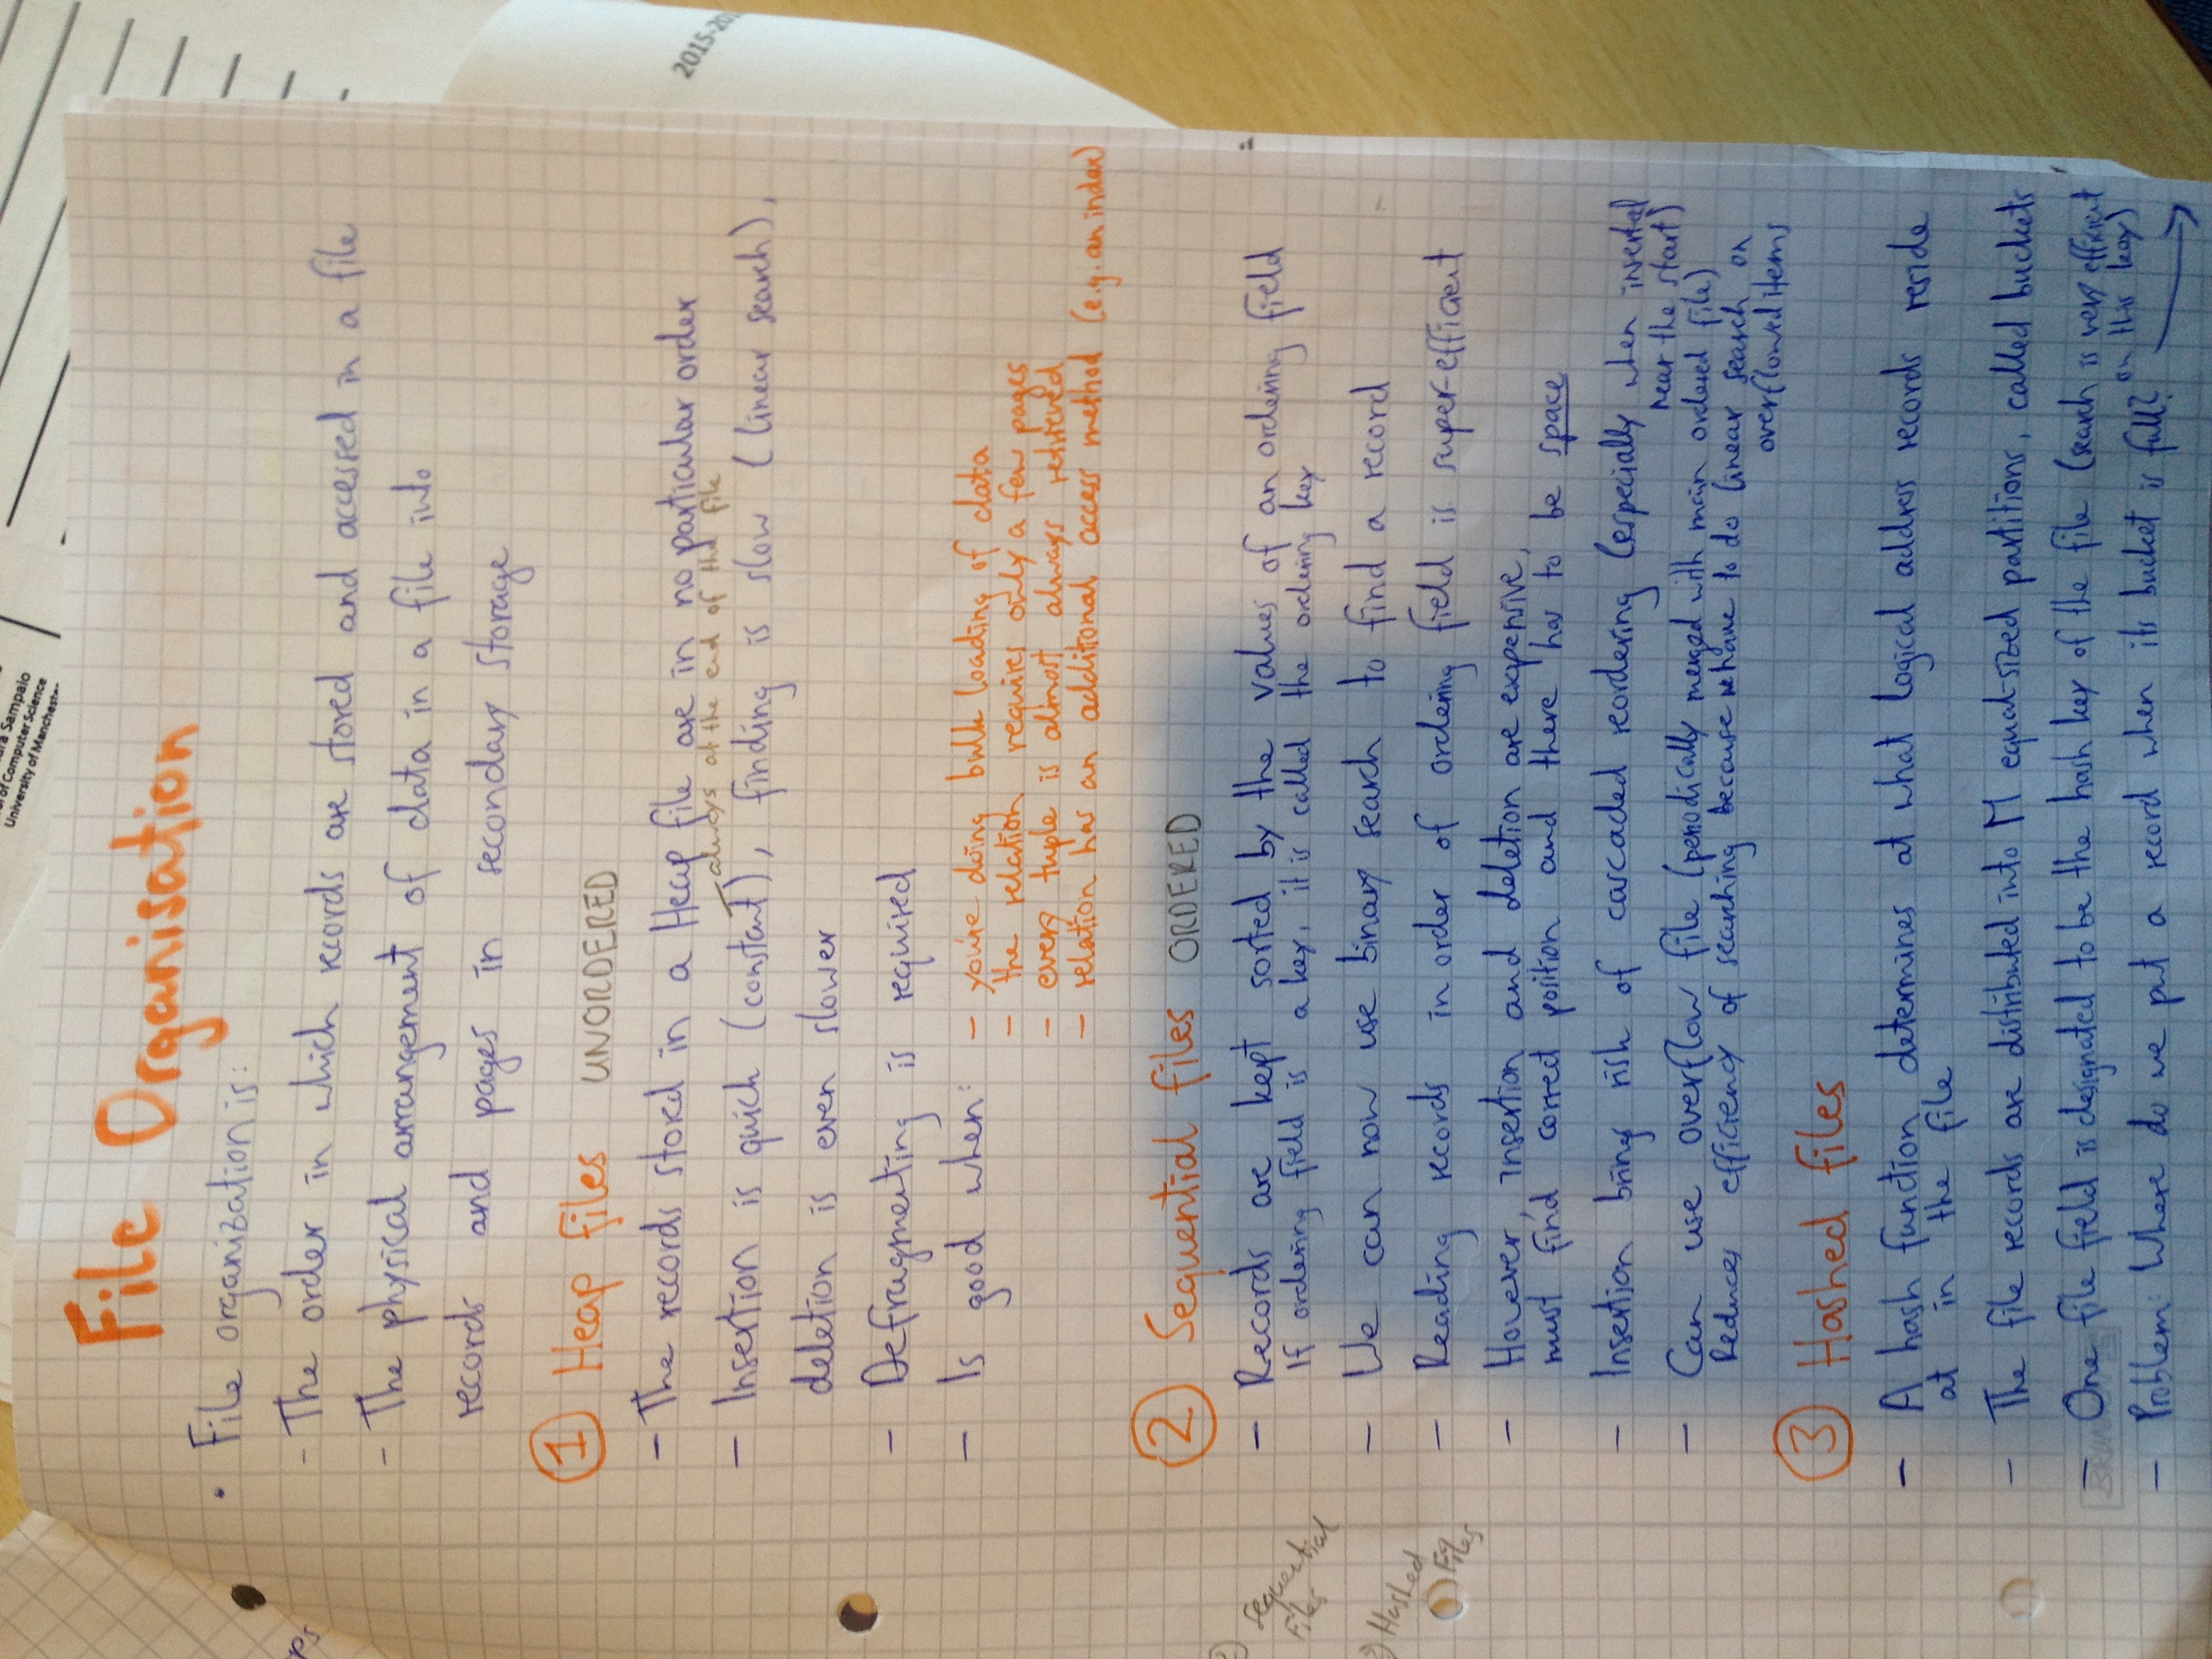 ra Sampaio
of Computer Science
University of Manchester
File Organisation
• File organization is:
- The order in which records are stored and accessed in a file
- The physical arrangement of data in a file into
records and pages in secondary storage
1 Heap files UNORDERED
- The records stored in a Heap file are in no particular order
always at the end of the file
- Insertion is quick (constant), finding is slow (linear search),
deletion is even slower
- Defragmenting is required
- Is good when: - you're doing bulk loading of data
- the relation requires only a few pages
- every tuple is almost always retrieved
- relation has an additional access method (e.g. an index)
2015-20
2 Sequential files ORDERED
- Records are kept sorted by the values of an ordering field
If ordering field is a key, it is called the ordering key
- We can now use binary search to find a record
- Reading records in order of ordering field is super-efficient
- However, insertion and deletion are expensive,
must find correct position and there has to be space
- Insertion brings risk of cascaded reordering (especially when inserted
near the start)
- Can use overflow file (periodically merged with main ordered file)
Reduces efficiency of searching because we have to do linear search on
overflowed items
2) Sequential
Files
3) Hashed
Files
3 Hashed files
- A hash function determines at what logical address records reside
at in the file
- The file records are distributed into M equal-sized partitions, called buckets
- One file field is designated to be the hash key of the file (search is very efficient
on this key)
- Problem: Where do we put a record when its bucket is full? →